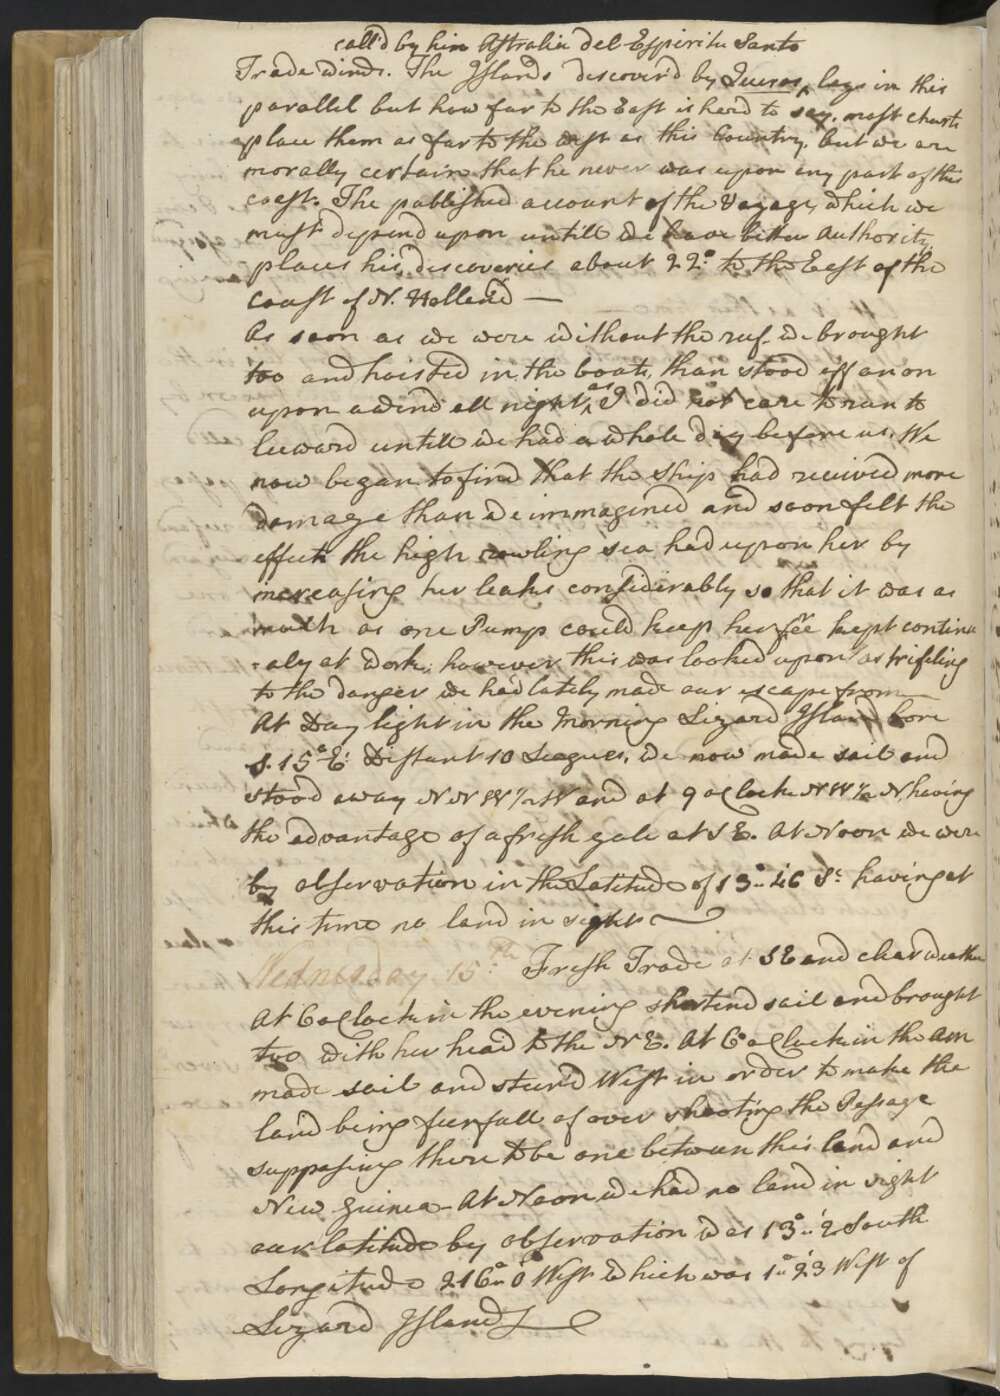 call'd by him Astralia del Espiritu Santo
Trade winds. The Islands discover'd by Queros ^ lays in this
parallel but how far to the East is hard to say, most charts
place them as far to the west as this Country, but we are
morally certain that he never was upon any part of this
coast. The published account of the Voyage, which we
must depend upon untill we have better Authority,
places his discoveries about 22° to the East of the
coast of N. Holland —
As soon as we were without the reef we brought
too and hoisted in the boats, than stood off an on
upon a wind all night, ^as I did not care to run to
leeward untill we had a whole day before us. We
now began to find that the Ship had received more
damage than we immagined and soon felt the
effect the high rowling sea had upon her by
increasing her leaks considerably so that it was as
much as one Pump could keep her free kept continu
-aly at work, however this was looked upon as trifeling
to the danger we had lately made our escape from —
At Day light in the Morning Lizard Island bore
S. 15° E. Distant 10 Leagues, we now made sail and
stood away NNW ½ W and at 9 oClock NW ½ N, having
the advantage of a fresh gale at SE. At Noon we were
by observation in the Latitude of 13°.. 46 S. having at
this time no land in sight
Wednesday 15th. Fresh Trade at SE and clear weather
At 6 oClock in the evening shortend sail and brought
too with her head to the NE. At 6 oClock in the Am
made sail and steer'd West in order to make the
land being feerfull of over shooting the Passage
supposing there to be one between this land and
New Guinea - At Noon we had no land in sight
our latitude by observation was 13°.. 2' South
Longitude 216°.. 0' West which was 1°.. 23 West of
Lizard Island